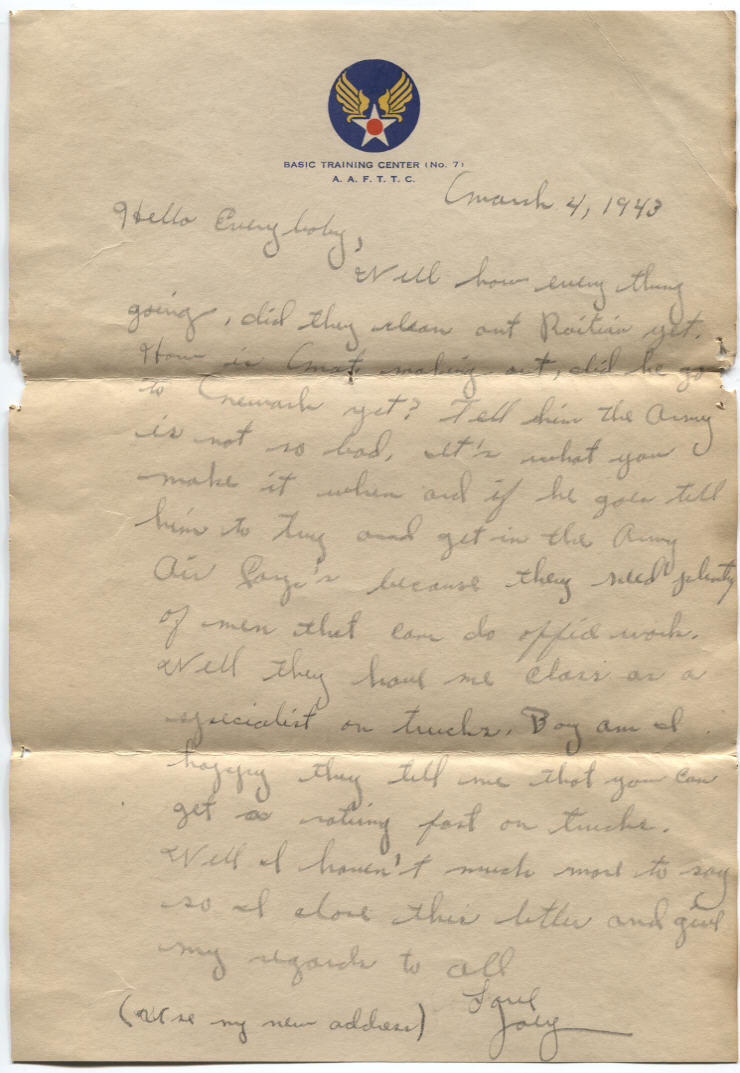 BASIC TRAINING CENTER (No. 7)
A. A. F. T. T. C.
March 4, 1943
Hello Everyboby,
Well how every thing
going, did they clean out Raitian yet.
How is Mat making out, did he go
to Newark yet? Tell him the Army
is not so bad, It's what you
make it when and if he goes tell
him to try and get in the Army
Air because they need plenty
of men that can do office work.
Well they have me class as a
specialist on trucks. Boy am I
happy they tell me that you can
get a rating fast on trucks.
Well I haven't much more to say
so I close this letter and give
my regards to all
Love
(Use my new address) Joey